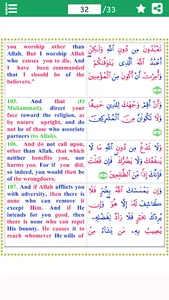 32
/33
you worship other than
Allah. But I worship Allah
who causes you to die. And
I have been commanded
that I should be of the
believers,"
تَعْبُدُونَ مِن دُونِ ٱللَّهِ وَلَٰكِنْ
أَعْبُدُ ٱللَّهَ ٱلَّذِى يَتَوَفَّىٰكُمْ
وَأُمِرْتُ أَنْ أَكُونَ مِنَ ٱلْمُؤْمِنِينَ
105. And that (O
Muhammad), direct your
face toward the religion, as
by nature upright, and do
not be of those who associate
partners (to Allah).
وَأَنْ أَقِمْ وَجْهَكَ لِلدِّينِ حَنِيفًا
وَلَا تَكُونَنَّ مِنَ ٱلْمُشْرِكِينَ
106. And do not call upon,
other than Allah, that which
neither benefits you, nor
harms you. For if you did,
so indeed, you would then be
of the wrongdoers.
وَلَا تَدْعُ مِن دُونِ ٱللَّهِ مَا
لَا يَنفَعُكَ وَلَا يَضُرُّكَ فَإِن فَعَلْتَ
فَإِنَّكَ إِذًا مِّنَ ٱلظَّٰلِمِينَ
107. And if Allah afflicts you
with adversity, then there is
none who can remove it
except Him. And if He
intends for you good, then
there is none who can repel
His bounty. He causes it to
reach whomever He wills of
وَإِن يَمْسَسْكَ ٱللَّهُ بِضُرٍّ فَلَا
كَاشِفَ لَهُۥٓ إِلَّا هُوَ وَإِن
يُرِدْكَ بِخَيْرٍ فَلَا رَآدَّ لِفَضْلِهِۦ
يُصِيبُ بِهِۦ مَن يَشَآءُ مِنْ